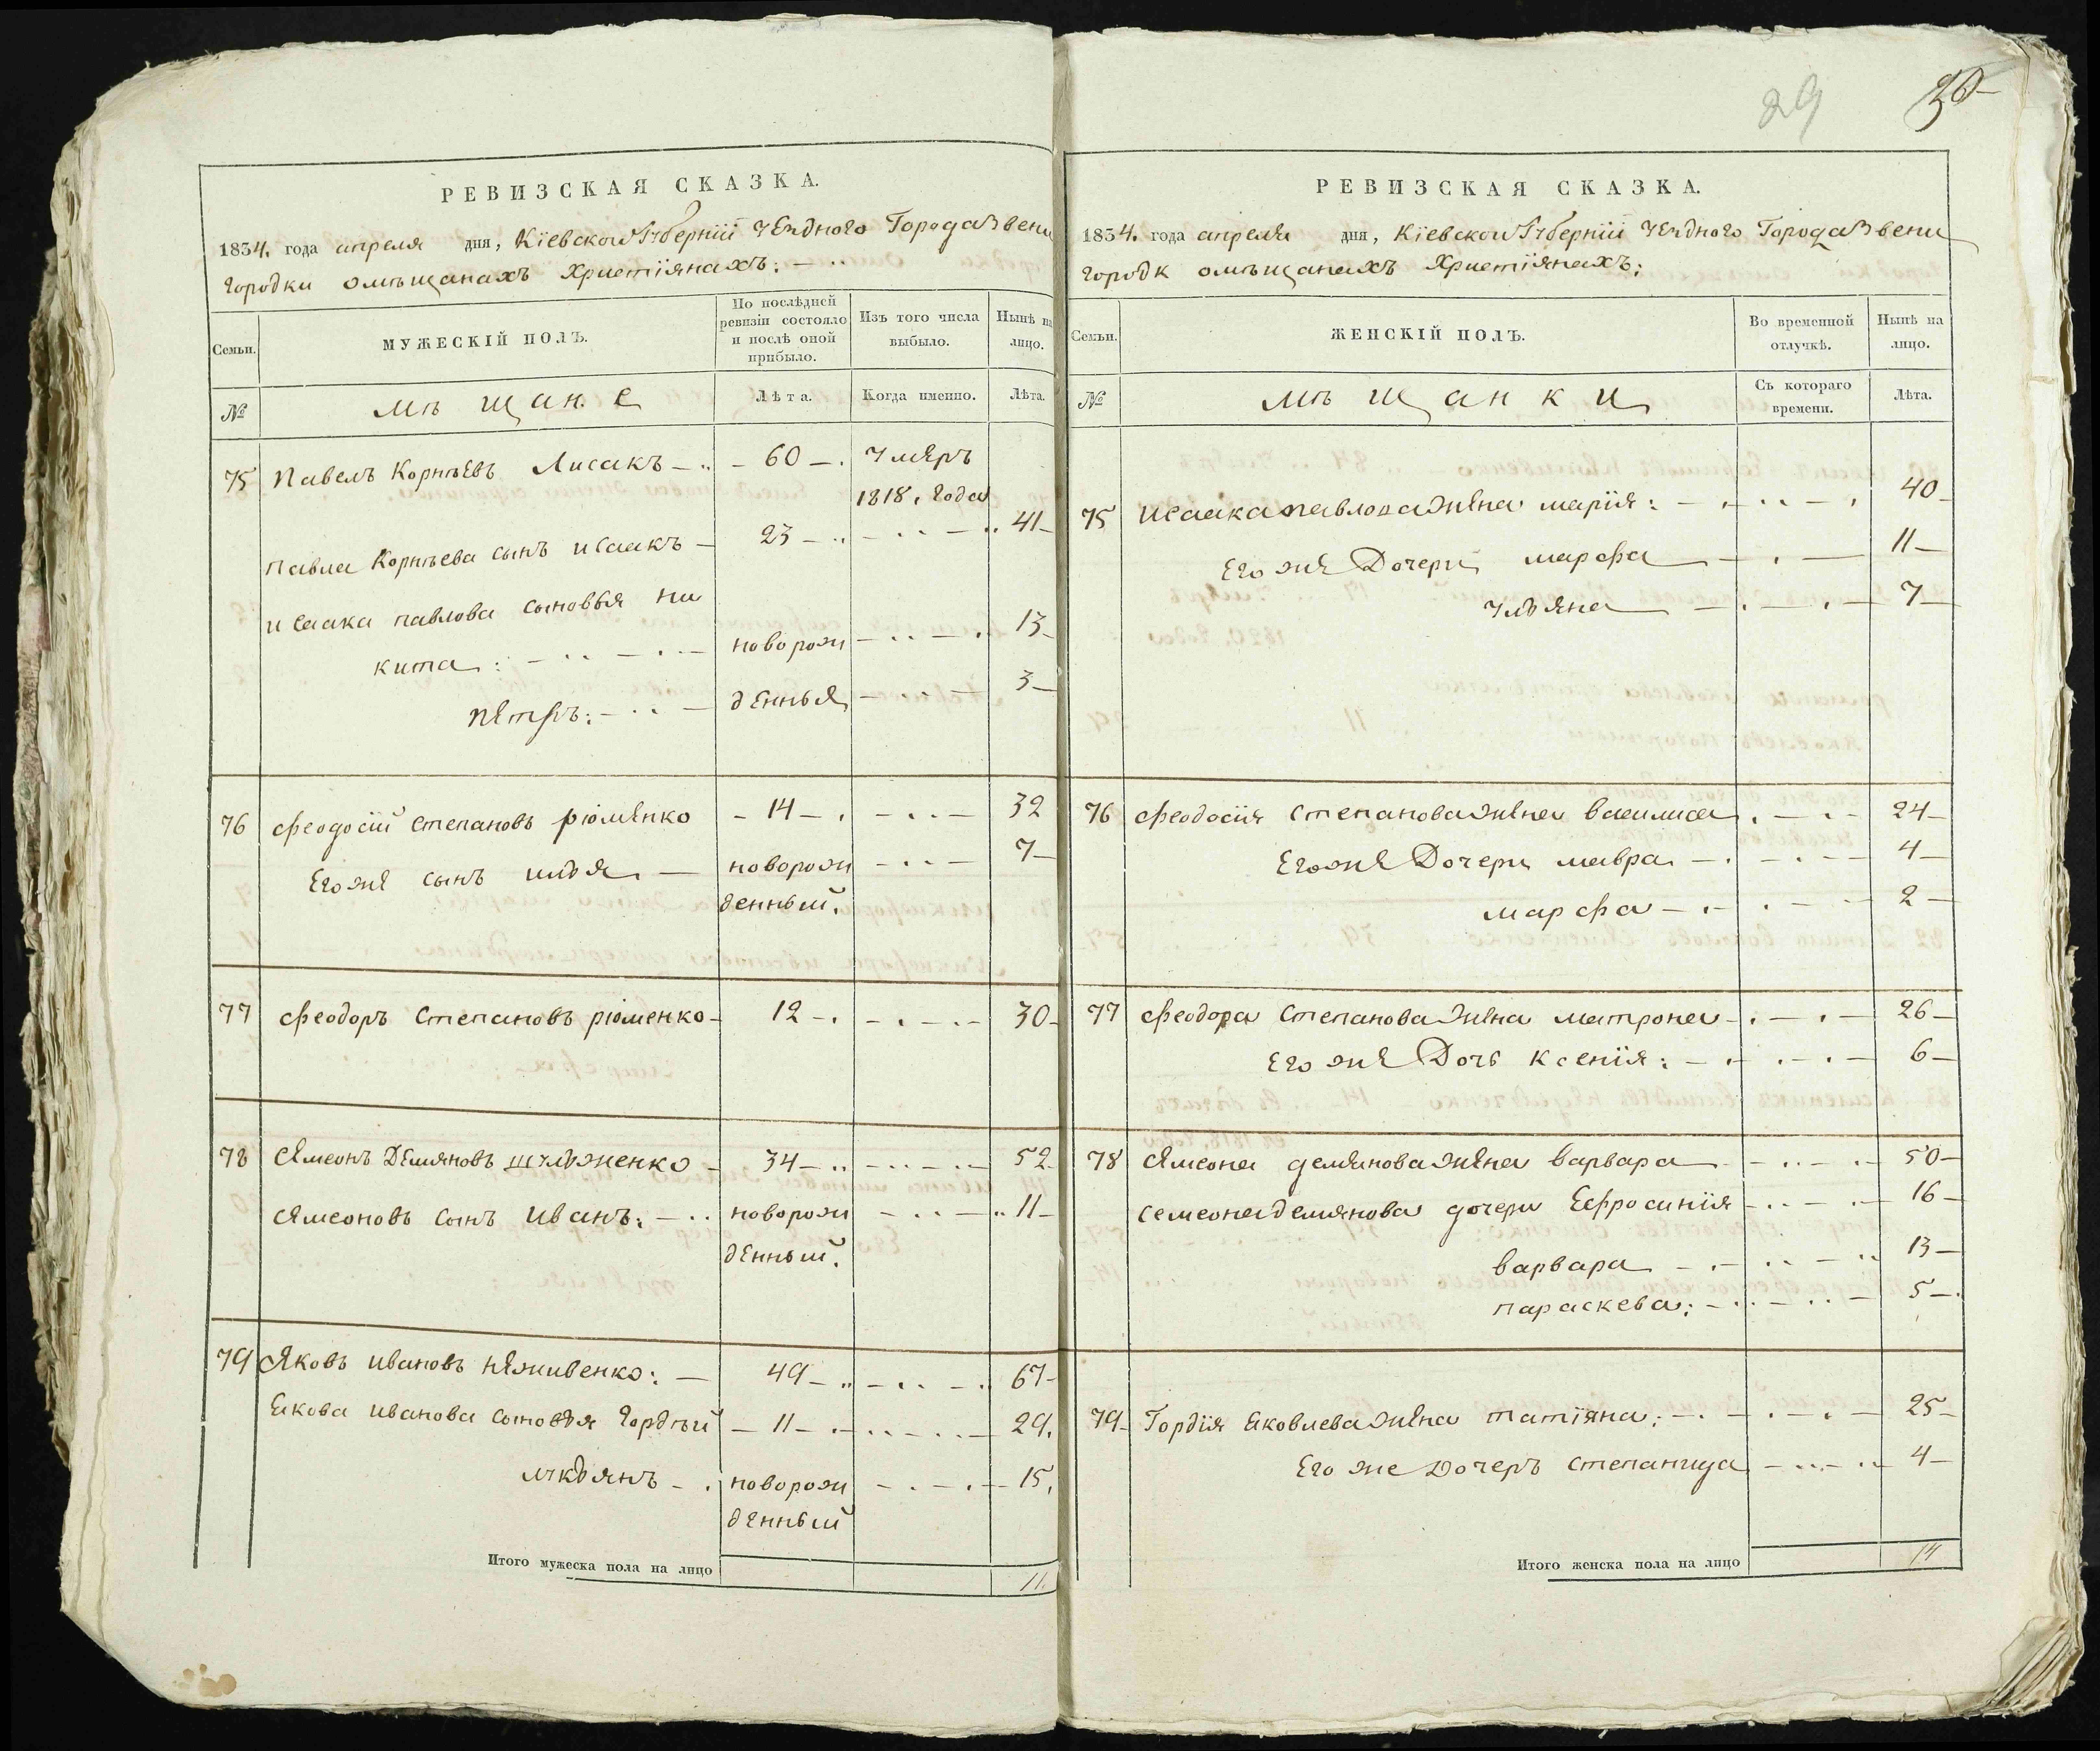 29 30
РЕВИЗСКАЯ СКАЗКА.
1834. года апреля дня, Кіевской Губерніи Уезднаго Города Звени
городки о мѣщанахъ Христіянахъ:
Семьи.
МУЖЕСКІЙ ПОЛЪ.
По послѣдней ревизіи состояло и послѣ оной прибыло.
Изъ того числа выбыло.
Нынѣ на лицо.
№
мѣщане
Лѣта.
Когда именно.
Лѣта.
75 Павелъ Корнѣевъ Лисакъ 60 Умеръ
1818. года
Павла Корнѣева сынъ исаакъ 23 41
исаака павлова сыновья ни
кита: новорож 13
петръ: денныя 3
76 феодосій степановъ рюменко 14 32
Его же сынъ илья новорож 7
денный.
77 феодоръ степановъ рюменко 12 30
78 семеонъ Демяновъ шульженко 34 52
семеоновъ сынъ иванъ: новорож 11
денный.
79 Яковъ ивановъ неживенко: 49 67
Якова иванова сыновья гордѣй 11 29.
лукьянъ новорож 15.
денный
Итого мужеска пола на лицо 11.
РЕВИЗСКАЯ СКАЗКА.
1834. года апреля дня, Кіевской Губерніи Уезднаго Города Звени
городк о мѣщанахъ Христіянахъ:
Семьи.
ЖЕНСКІЙ ПОЛЪ.
Во временной отлучкѣ.
Нынѣ на лицо.
№
мѣщанки
Съ котораго времени.
Лѣта.
75 исаака павлова жена марія: 40
Его же Дочери марфа 11
ульяна 7
76 феодосія степанова жена василиса 24
Его же Дочери мавра 4
марфа 2
77 феодора степанова жена матрона 26
Его же Дочь ксенія: 6
78 семеона демянова жена варвара 50
семеона демянова дочери Ефросинія 16
варвара 13
параскева: 5
79 Гордія Яковлева жена татіяна: 25
Его же Дочеръ степанида 4
Итого женска пола на лицо 14